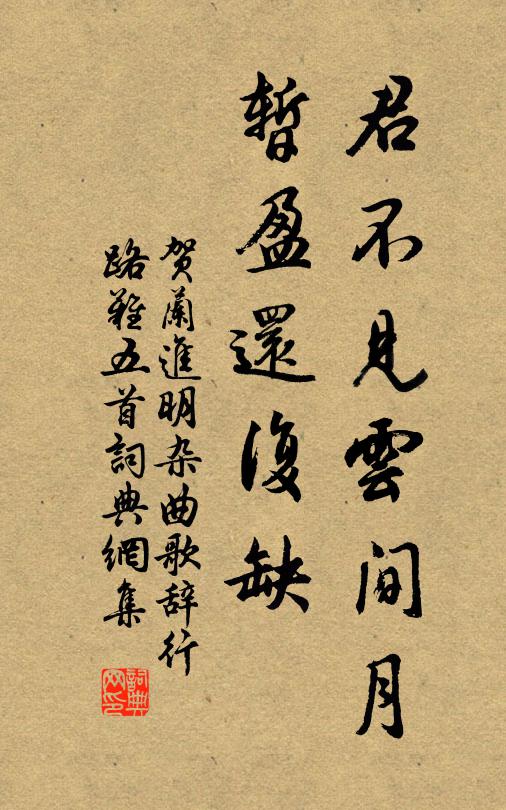 君不見雲间月
暫盈還復缺
贺蘭進明杂曲歌辞行
路難五首詞典網集
詞典
网印